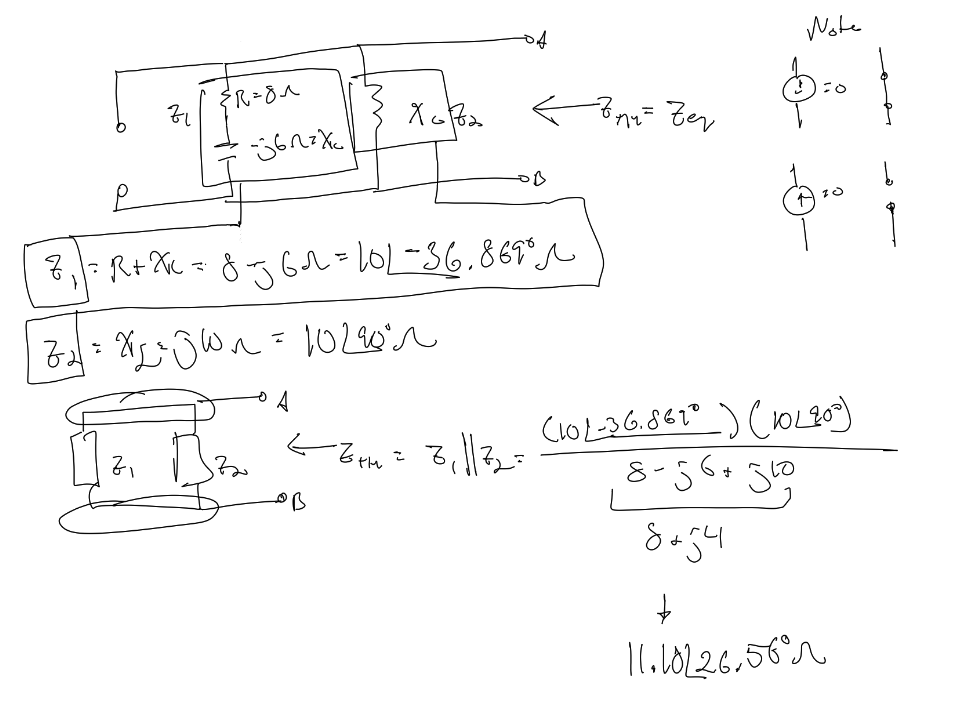 Note
A
Z1
R=8Ω
-j6Ω=Xc
Z2
← ZTH = Zeq
=0
B
=0
Z1 = R+Xc = 8-j6Ω = 10∠-36.869°Ω
Z2 = XL = j10Ω = 10∠90°Ω
A
Z1
Z2
B
← ZTH = Z1||Z2 = (10∠-36.869°)(10∠90°)
8-j6+j10
8+j4
↓
11.18∠26.56°Ω